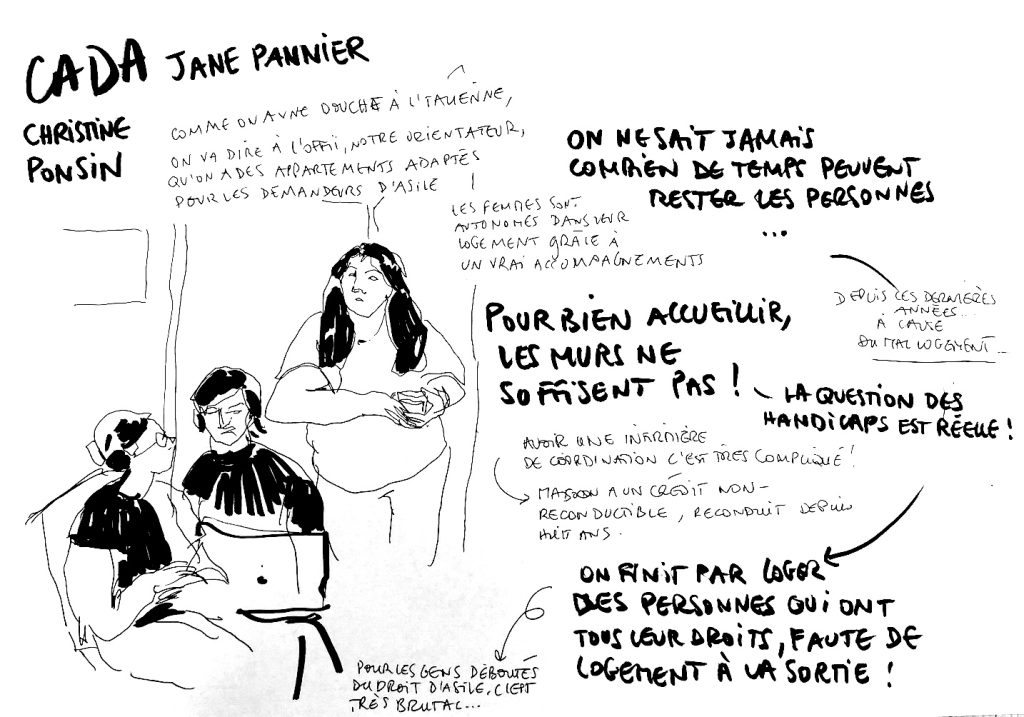 CADA JANE PANNIER
CHRISTINE
PONSIN
COMME ON A UNE DOUCHE À L'ITALIENNE,
ON VA DIRE À L'OFFI, NOTRE ORIENTATEUR,
QU'ON A DES APPARTEMENTS ADAPTÉS
POUR LES DEMANDEURS D'ASILE
LES FEMMES SONT
AUTONOMES DANS LEUR
LOGEMENT GRÂCE À
UN VRAI ACCOMPAGNEMENTS
ON NE SAIT JAMAIS
COMBIEN DE TEMPS PEUVENT
RESTER LES PERSONNES
...
DEPUIS CES DERNIÈRES
ANNÉES...
À CAUSE
DU MAL LOGEMENT...
POUR BIEN ACCUEILLIR,
LES MURS NE
SUFFISENT PAS !
LA QUESTION DES
HANDICAPS EST RÉELLE !
AVOIR UNE INFIRMIÈRE
DE COORDINATION C'EST TRÈS COMPLIQUÉ !
A UN CRÉDIT NON-
RECONDUCTIBLE, RECONDUIT DEPUIS
HUIT ANS.
ON FINIT PAR LOGER
DES PERSONNES QUI ONT
TOUS LEUR DROITS, FAUTE DE
LOGEMENT À LA SORTIE !
POUR LES GENS DÉBOUTÉS
DU DROIT D'ASILE, C'EST
TRÈS BRUTAL...